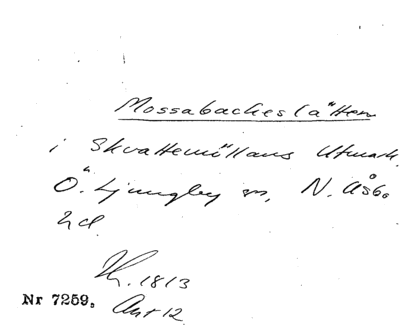 Mossabackeslätten
i Skvattemöllans Utmark.
Ö. Ljungby sn, N. Åsbo
hd
1813
Nr 7259. Akt 12